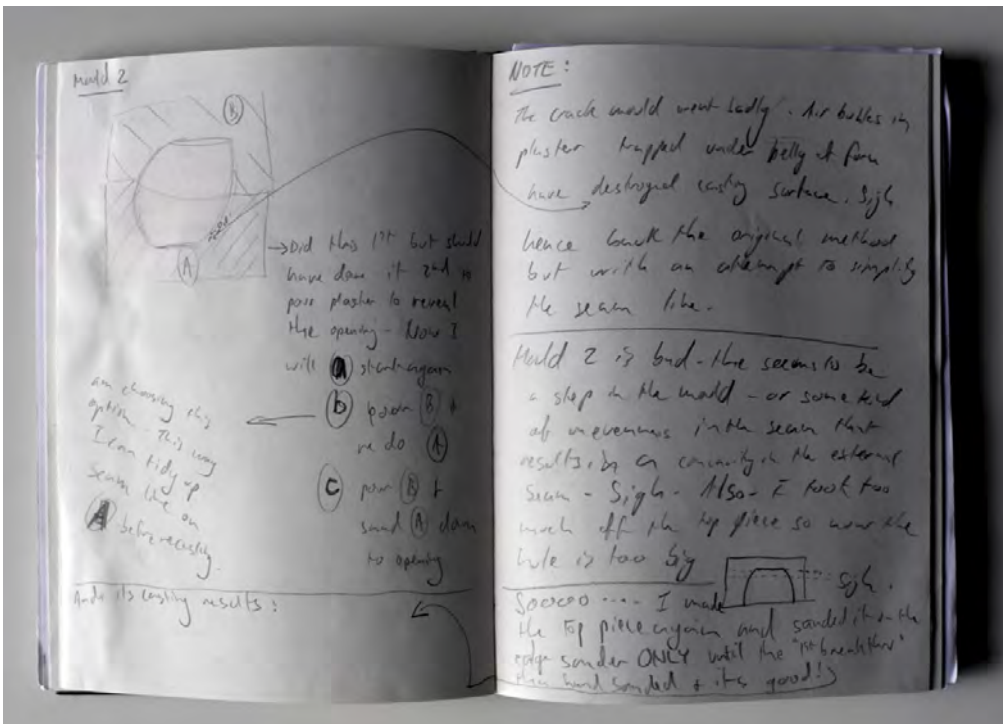 Mould 2
B
A
→ Did this 1st but should
have done it 2nd to
pour plaster to reveal
the opening - Now I
will a start again
b pour B +
re do A
c pour B +
sand A down
to opening
am choosing this
option - This way
I can tidy up
seam line on
A before recasting.
And its casting results :
NOTE :
The crack mould went badly. Air bubles in
plaster trapped under belly of form
have destroyed casting surface. Sigh
hence back the original method
but with an attempt to simplify
the seam line.
Mould 2 is bad - there seems to be
a step in the mould - or some kind
of unevenness in the seam that
results in a concavity in the external
seam - Sigh - Also - I took too
much off the top piece so now the
hole is too big
sigh.
Sooooo .... I made
the top piece again and sanded it on the
edge sander ONLY until the "1st breakthru"
then hand sanded + its good!)